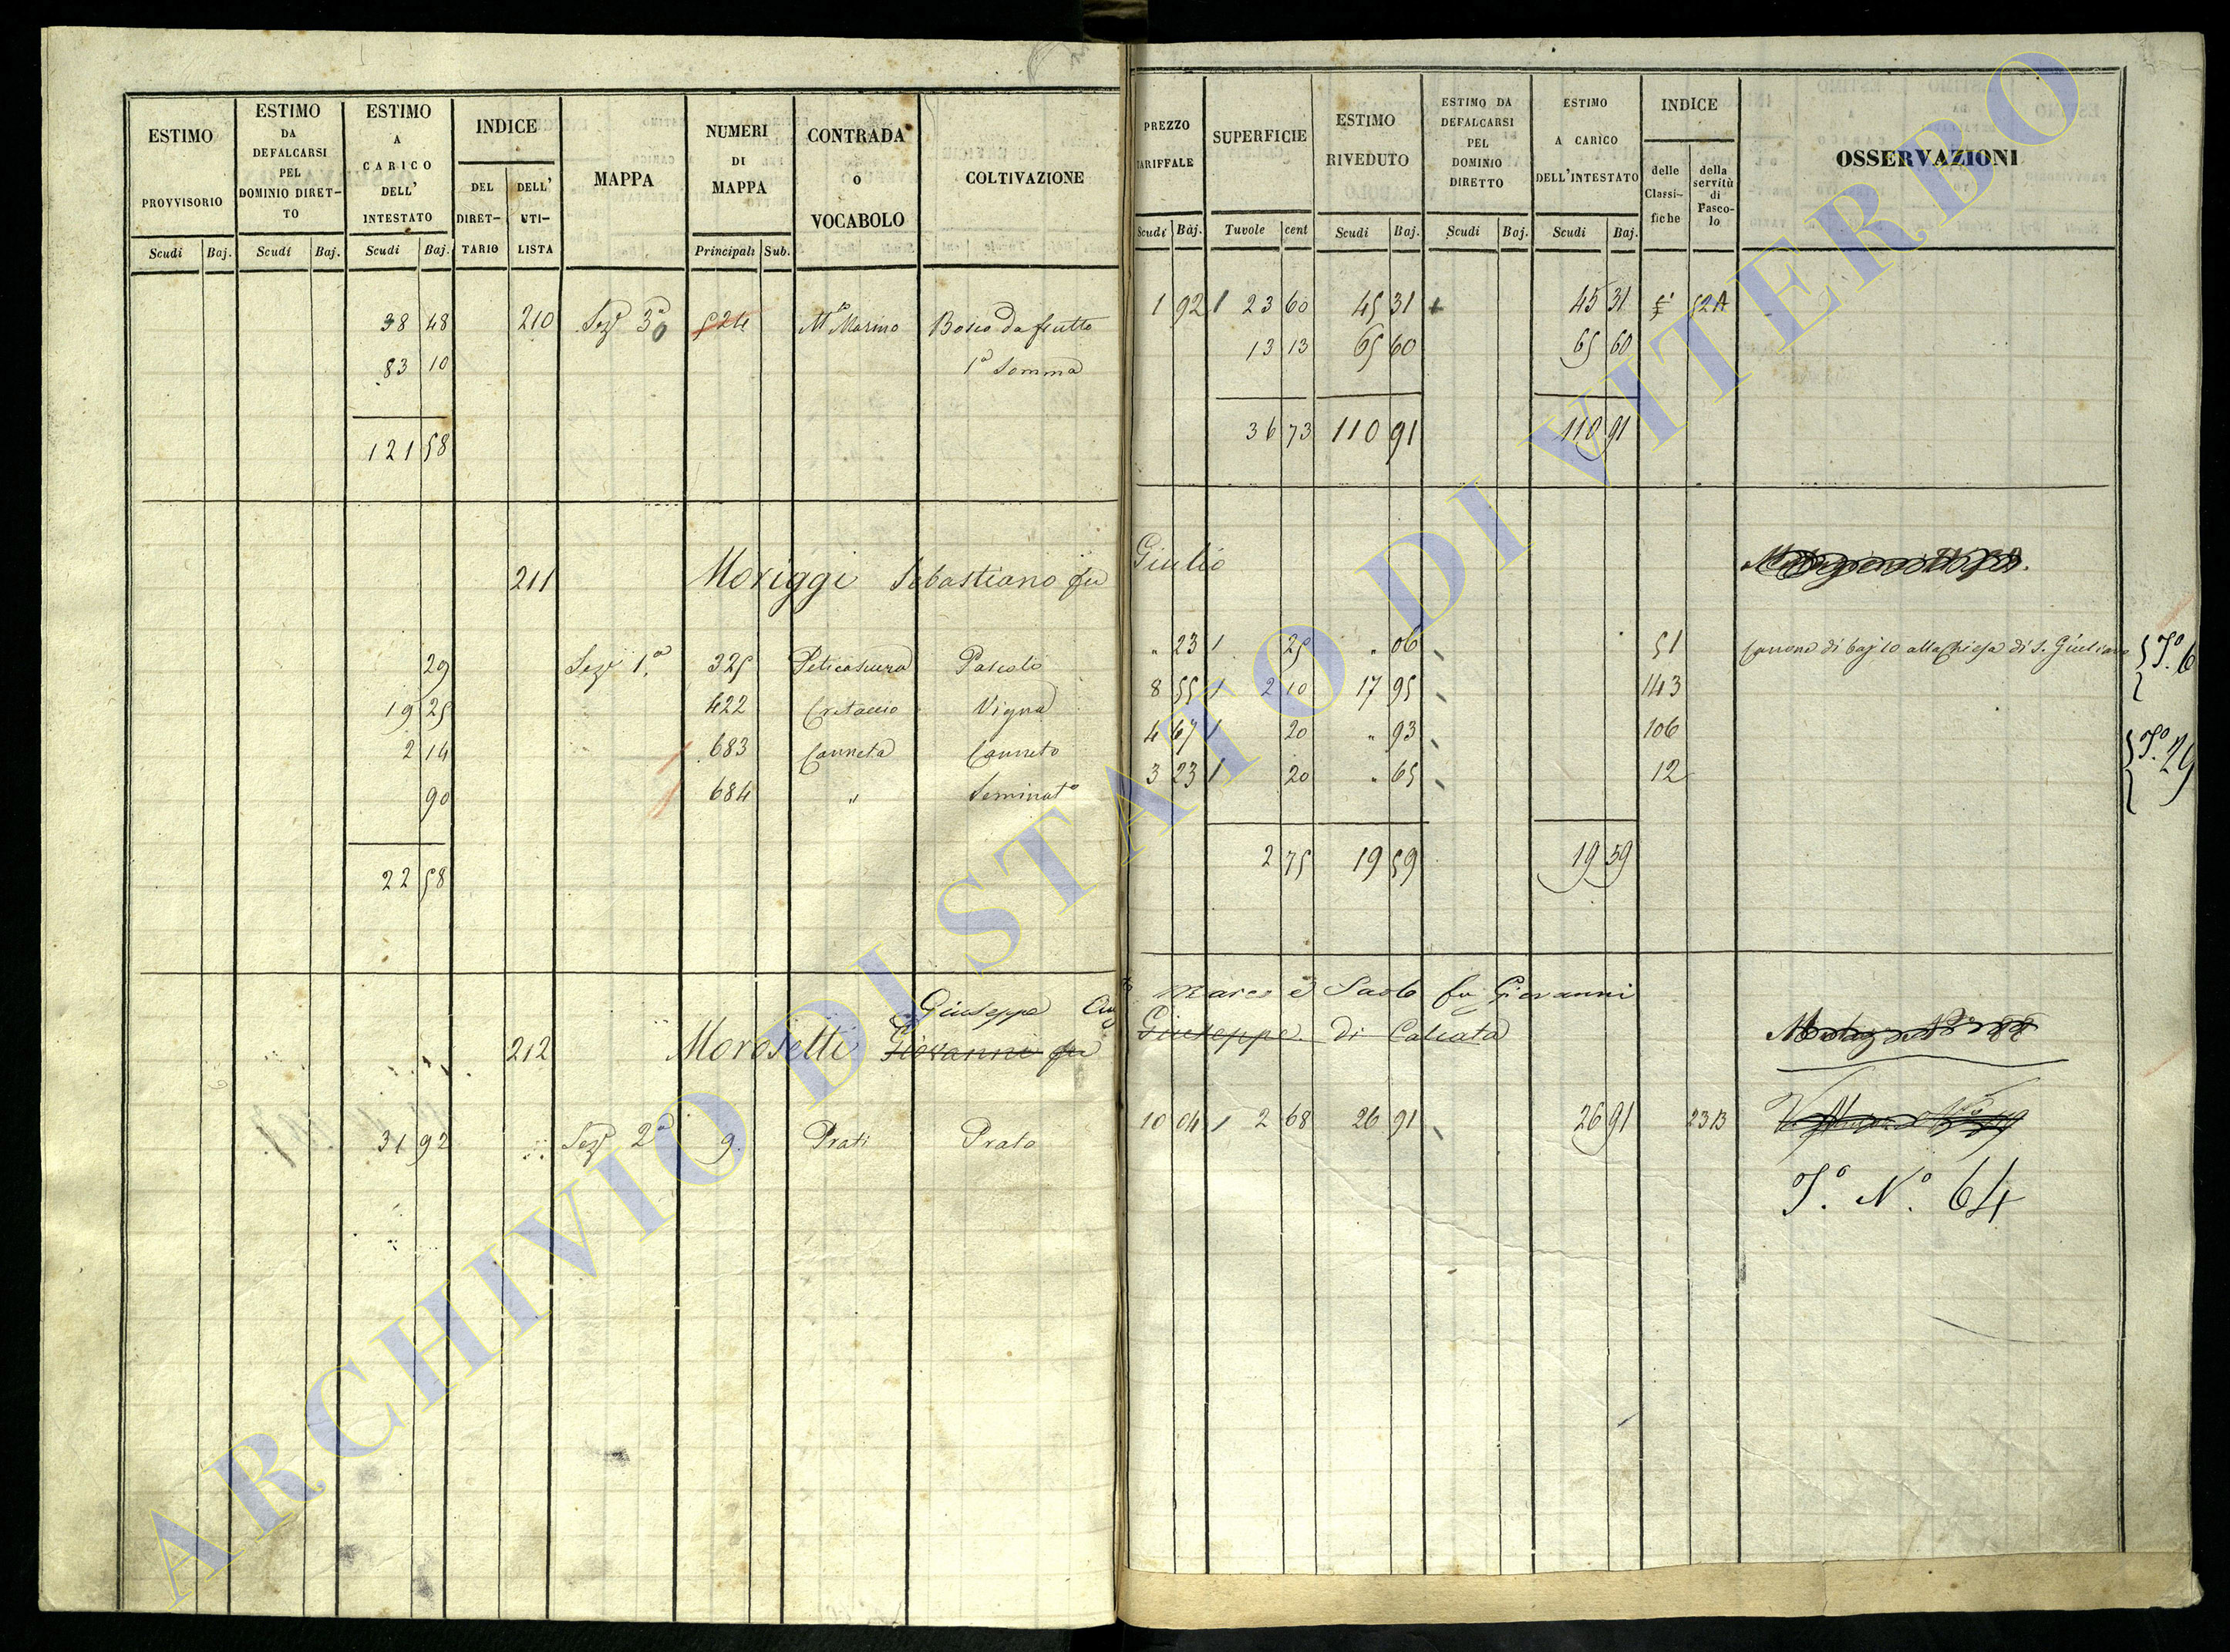 ESTIMO PROVVISORIO Scudi Baj.
ESTIMO DA DEFALCARSI PEL DOMINIO DIRET- TO Scudi Baj.
ESTIMO A CARICO DELL' INTESTATO Scudi Baj.
INDICE DEL DIRET- TARIO DELL' UTI- LISTA
MAPPA
NUMERI DI MAPPA Principali Sub.
CONTRADA O VOCABOLO
COLTIVAZIONE
PREZZO TARIFFALE Scudi Baj.
SUPERFICIE Tuvole cent
ESTIMO RIVEDUTO Scudi Baj.
ESTIMO DA DEFALCARSI PEL DOMINIO DIRETTO Scudi Baj.
ESTIMO A CARICO DELL'INTESTATO Scudi Baj.
INDICE delle Classi- fiche della servitù di Pasco- lo
OSSERVAZIONI
38 48 210 Sezẽ 3ª 524 Mᵉ Marino Bosco da frutto 1 92 23 60 45 31 45 31 52A
83 10 1ª Somma 13 13 65 60 65 60
121 58 36 73 110 91 110 91
211 Moriggi Sebastiano fu Giulio
29 Sezẽ 1.ª 325 Peticascura Pascolo " 23 25 " 06 51 Cannone di baj 10 alla Chiesa di S. Giuliano Tº 6
19 25 422 Cretaccio Vigna 8 55 2 10 17 95 143
2 14 683 Canneta Canneto 4 67 20 " 93 106 Tº 29
90 684 " Seminatº 3 23 20 " 65 12
22 58 2 75 19 59 19 59
Giuseppe Marco e Paolo fu Giovanni
212 Morosetti Giovanni fu Giuseppe di Calcata
31 92 Sezẽ 2ª 9 Prati Prato 10 04 2 68 26 91 26 91 23B
Tº. Nº. 64
ARCHIVIO DI STATO DI VITERBO